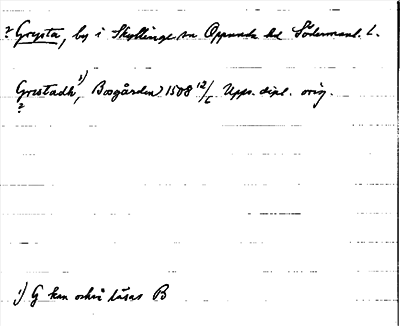 ? Grysta, by i Skyttinge sn Oppunda hd Södermanl. L.
Grestadh 1), Bosgården 1508 12/6 Upps. dipl. orig.
?
1) G kan också läsas B